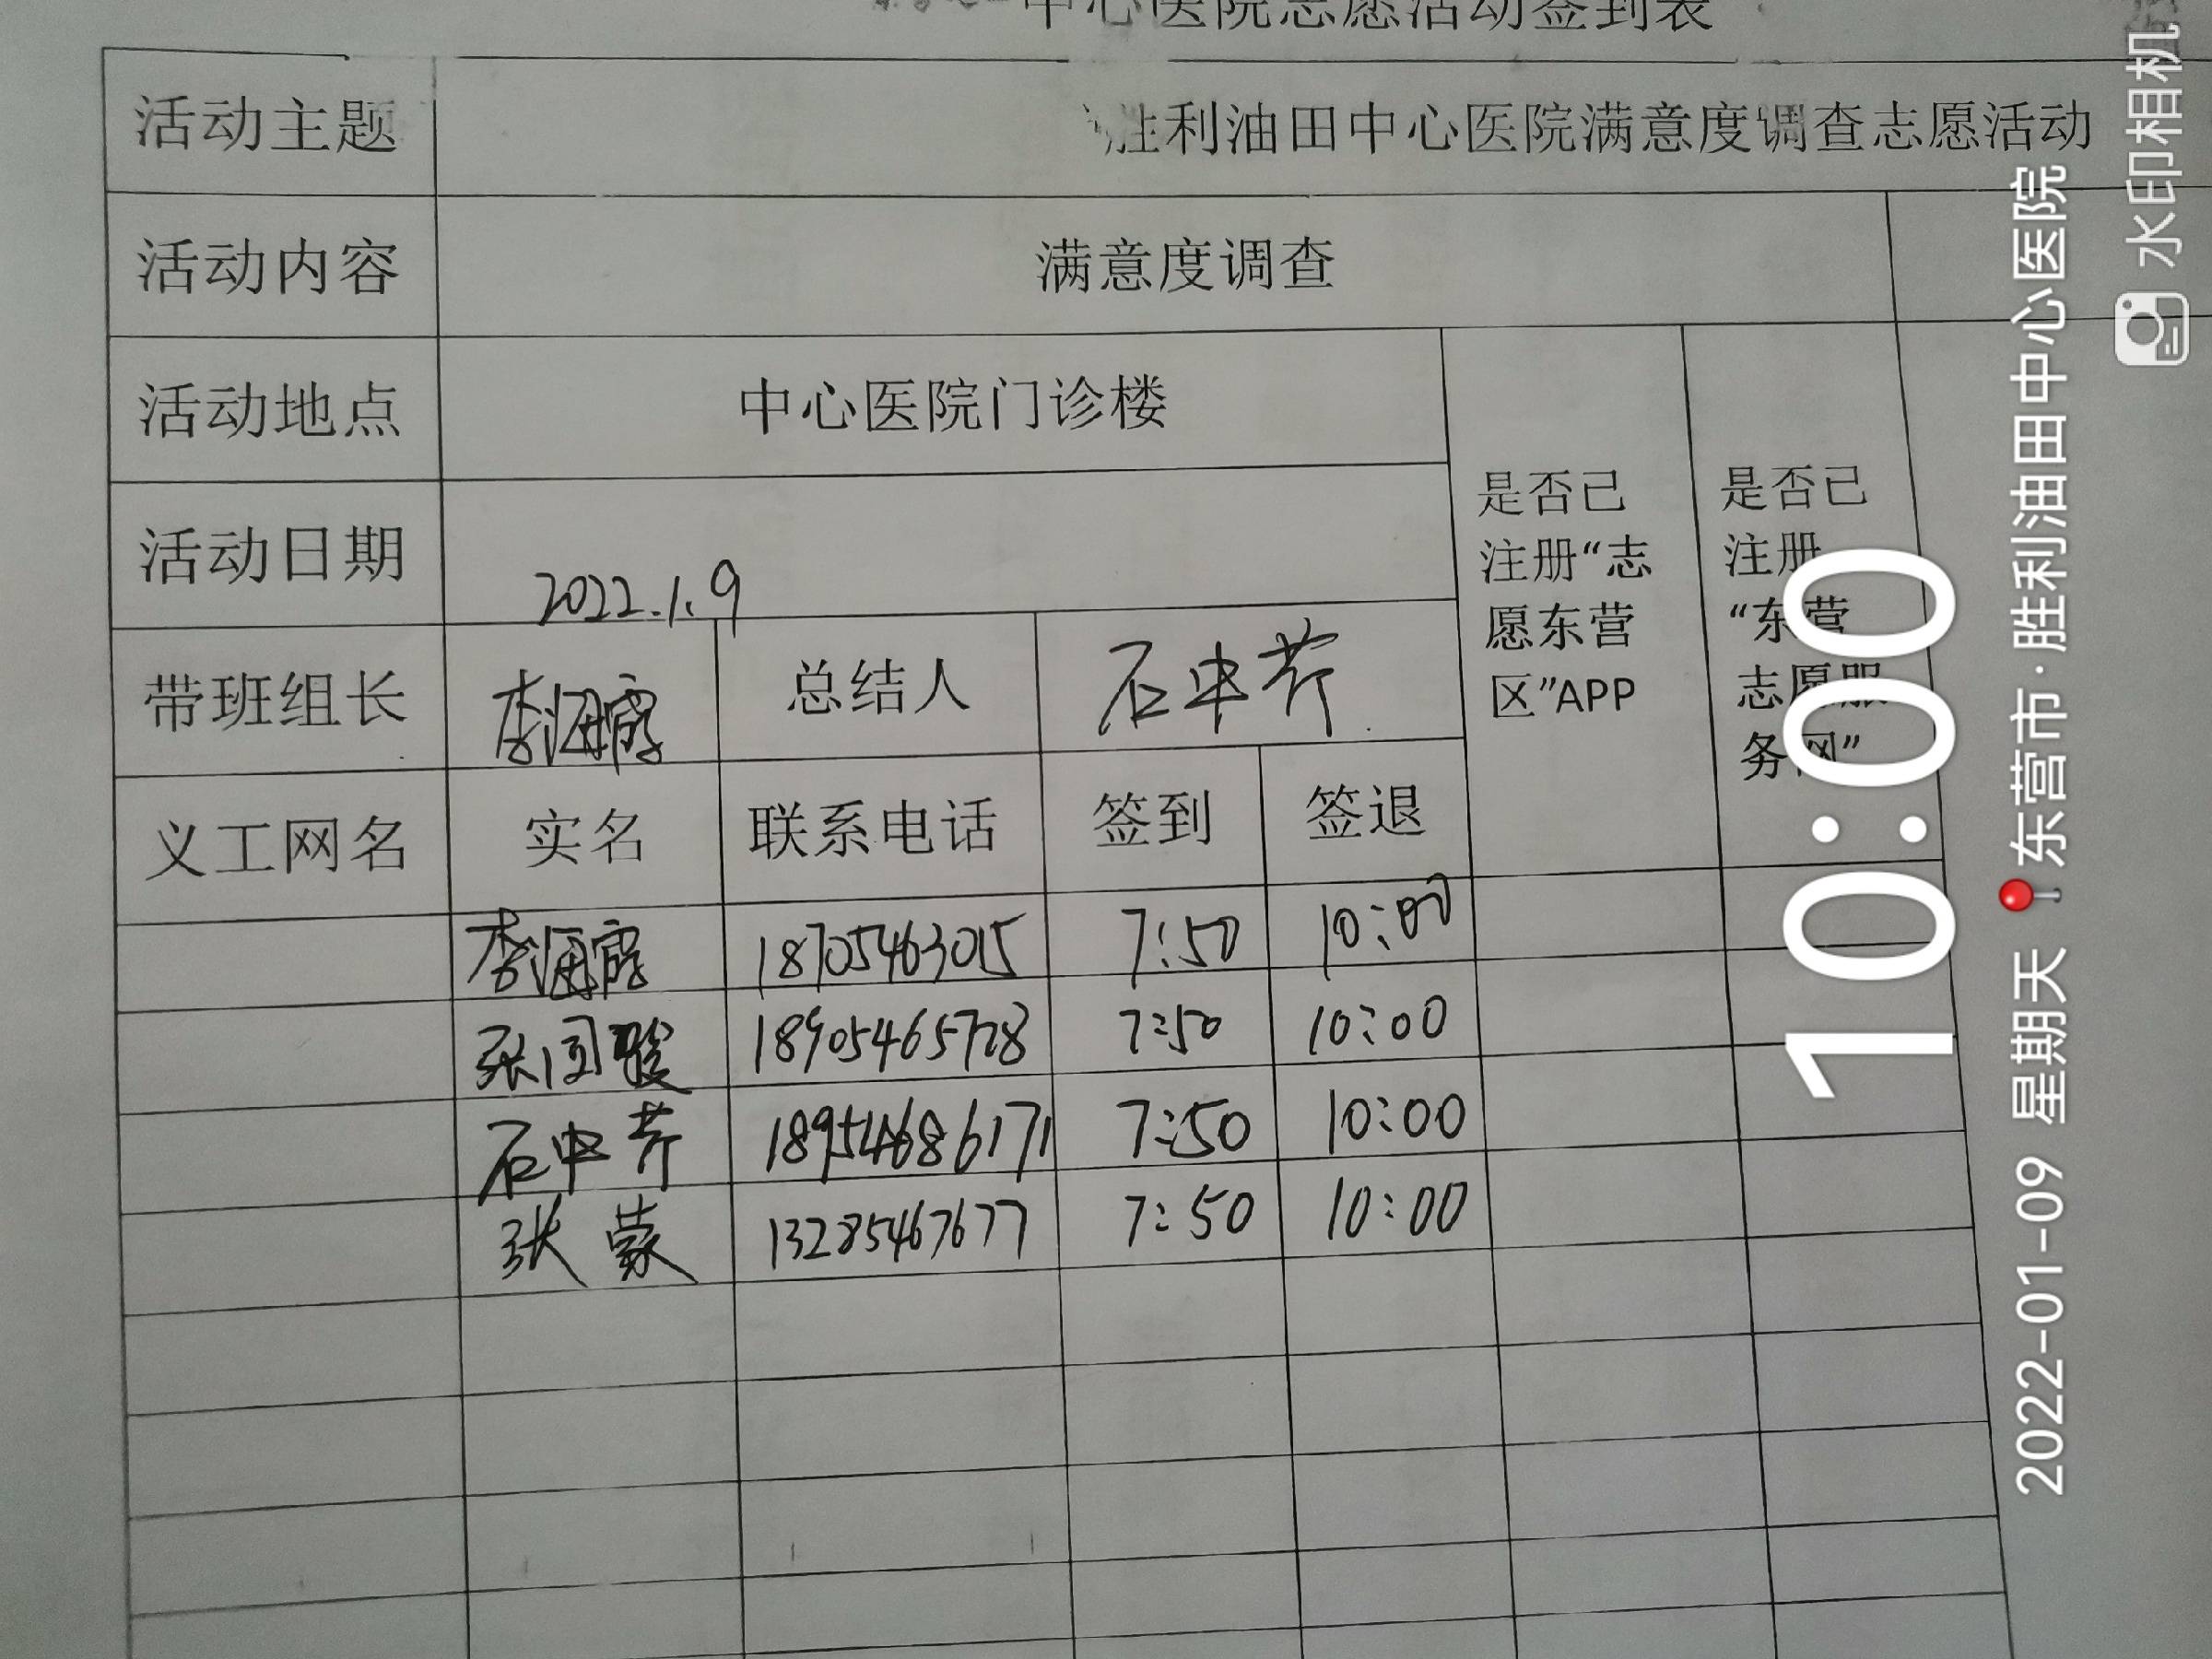 中心医院志愿活动签到表
活动主题 胜利油田中心医院满意度调查志愿活动
活动内容 满意度调查
活动地点 中心医院门诊楼
活动日期 2022.1.9
是否已注册“志愿东营区”APP
是否已注册“东营志愿服务网”
带班组长 李海霞 总结人 石中芹
义工网名 实名 联系电话 签到 签退
李海霞 18705463015 7:50 10:00
张国骏 18905465728 7:50 10:00
石中芹 18954686171 7:50 10:00
张蒙 13285467677 7:50 10:00
10:00
2022-01-09 星期天 东营市·胜利油田中心医院
水印相机